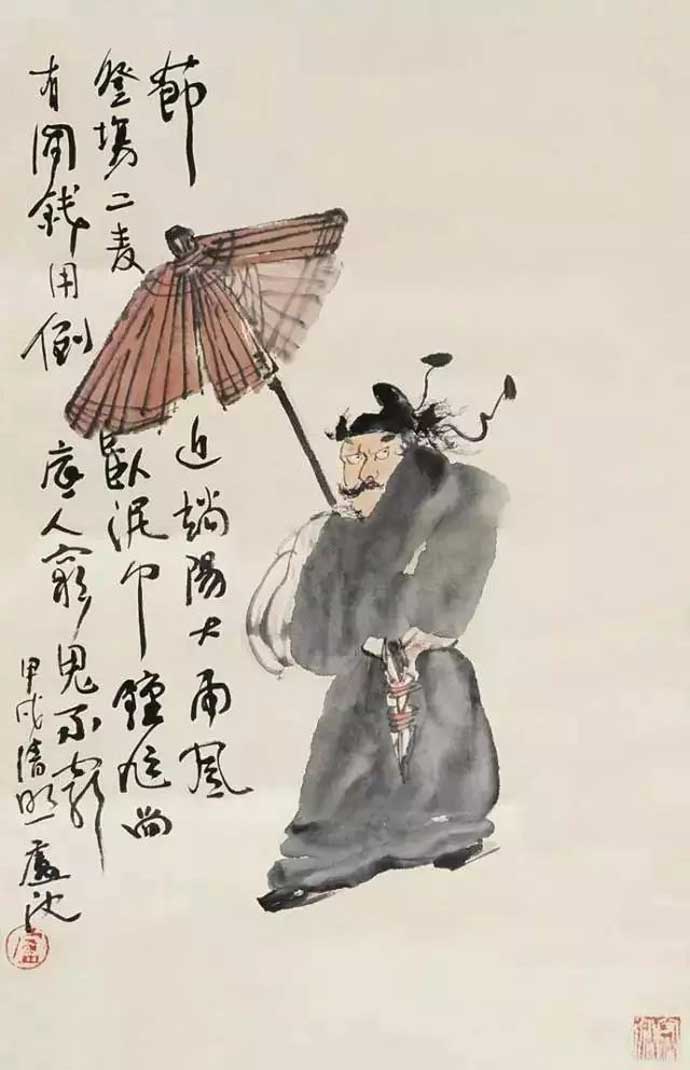 節近端陽大雨風
登場二麦臥泥中鍾馗尚
有閒錢用倒底人窮鬼不窮
甲戌清明盧沈